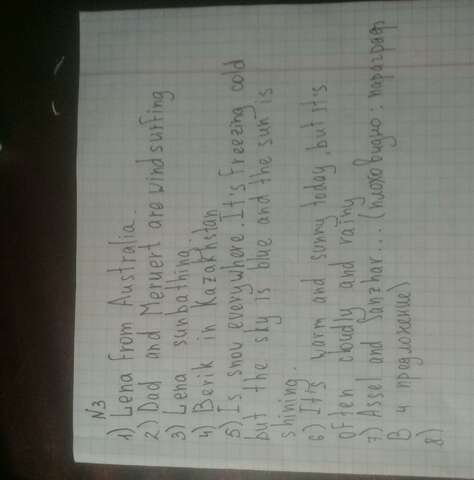 N3
1) Lena from Australia.
2) Dad and Meruert are windsurfing
3) Lena sunbathing.
4) Berik in Kazakhstan
5) Is snow everywhere. It's freezing cold
but the sky is blue and the sun is
shining.
6) It's warm and sunny today, but it's
often cloudly and rainy
7) Assel and Sanzhar... (плохо видно: параграф
В 4 предложение)
8)